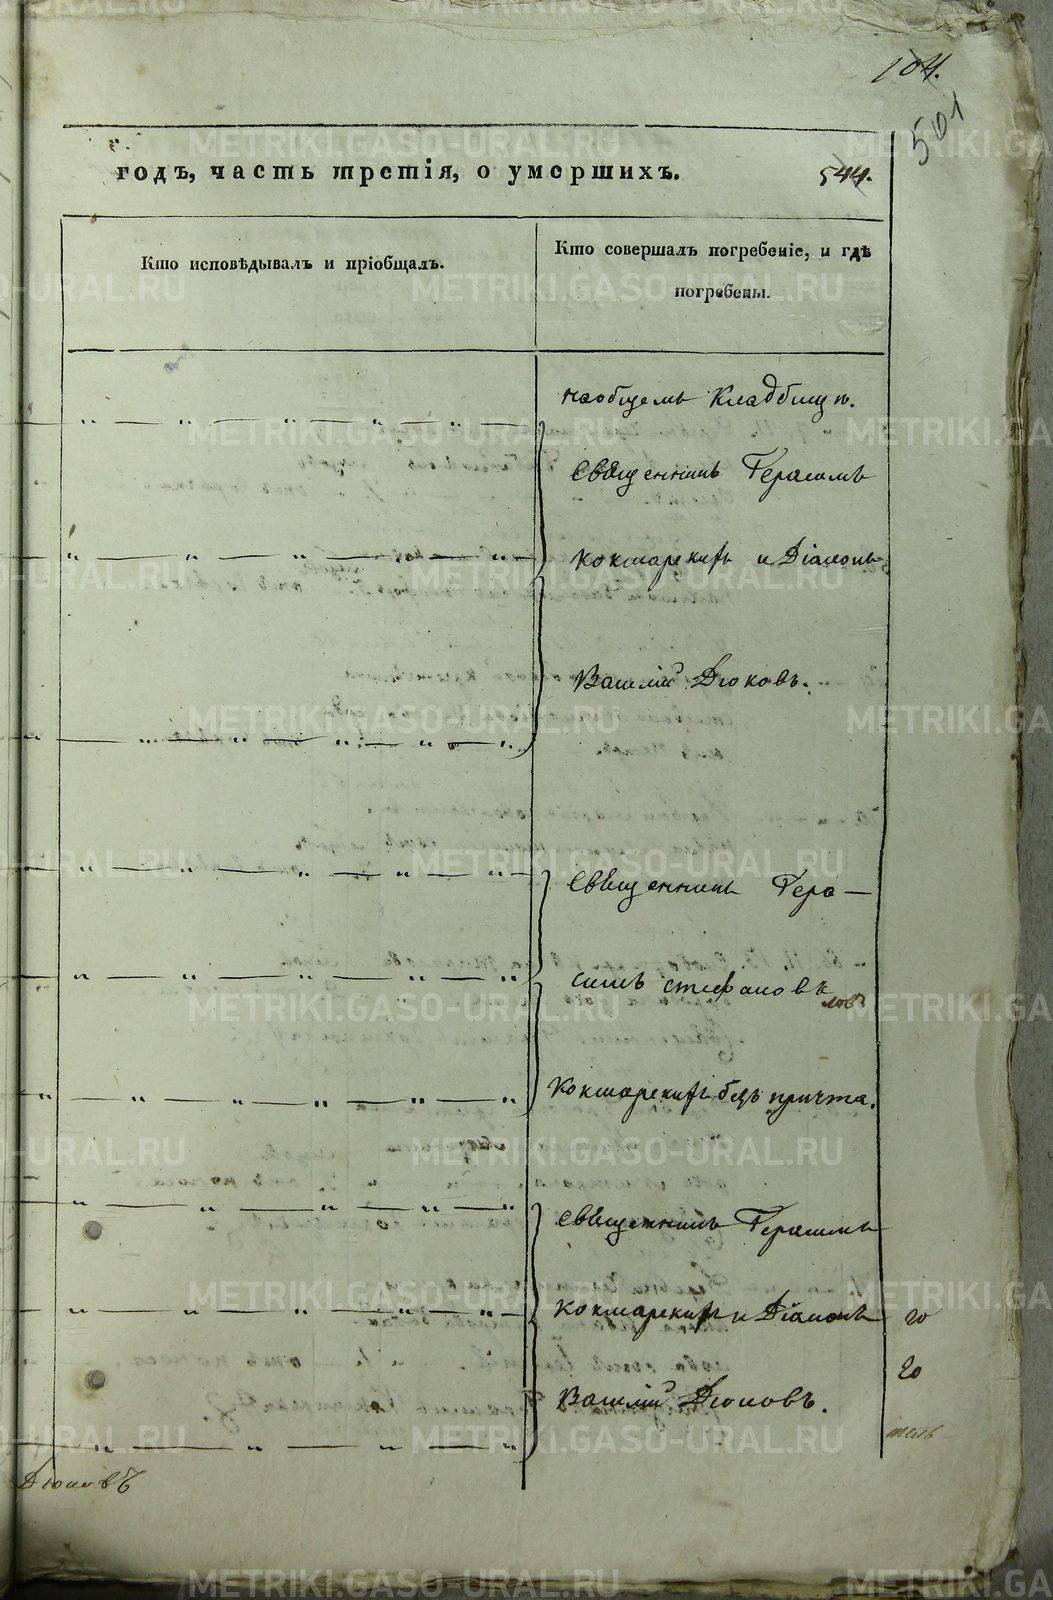 104.
501
годъ, часть третія, о умершихъ.
544.
Кто исповѣдывалъ и пріобщалъ.
Кто совершалъ погребеніе, и гдѣ
погребены.
на общемъ Кладбищѣ.
Священникъ Герасимъ
Кокшарскій и Діаконъ
Василій Дюковъ.
Священникъ Гера—
симъ Стефановъ
Кокшарскій безъ причта.
Священникъ Герасимъ
Кокшарскій и Діаконъ
20
20
Василій Дюковъ.
Дюковъ
METRIKI.GASO-URAL.RU